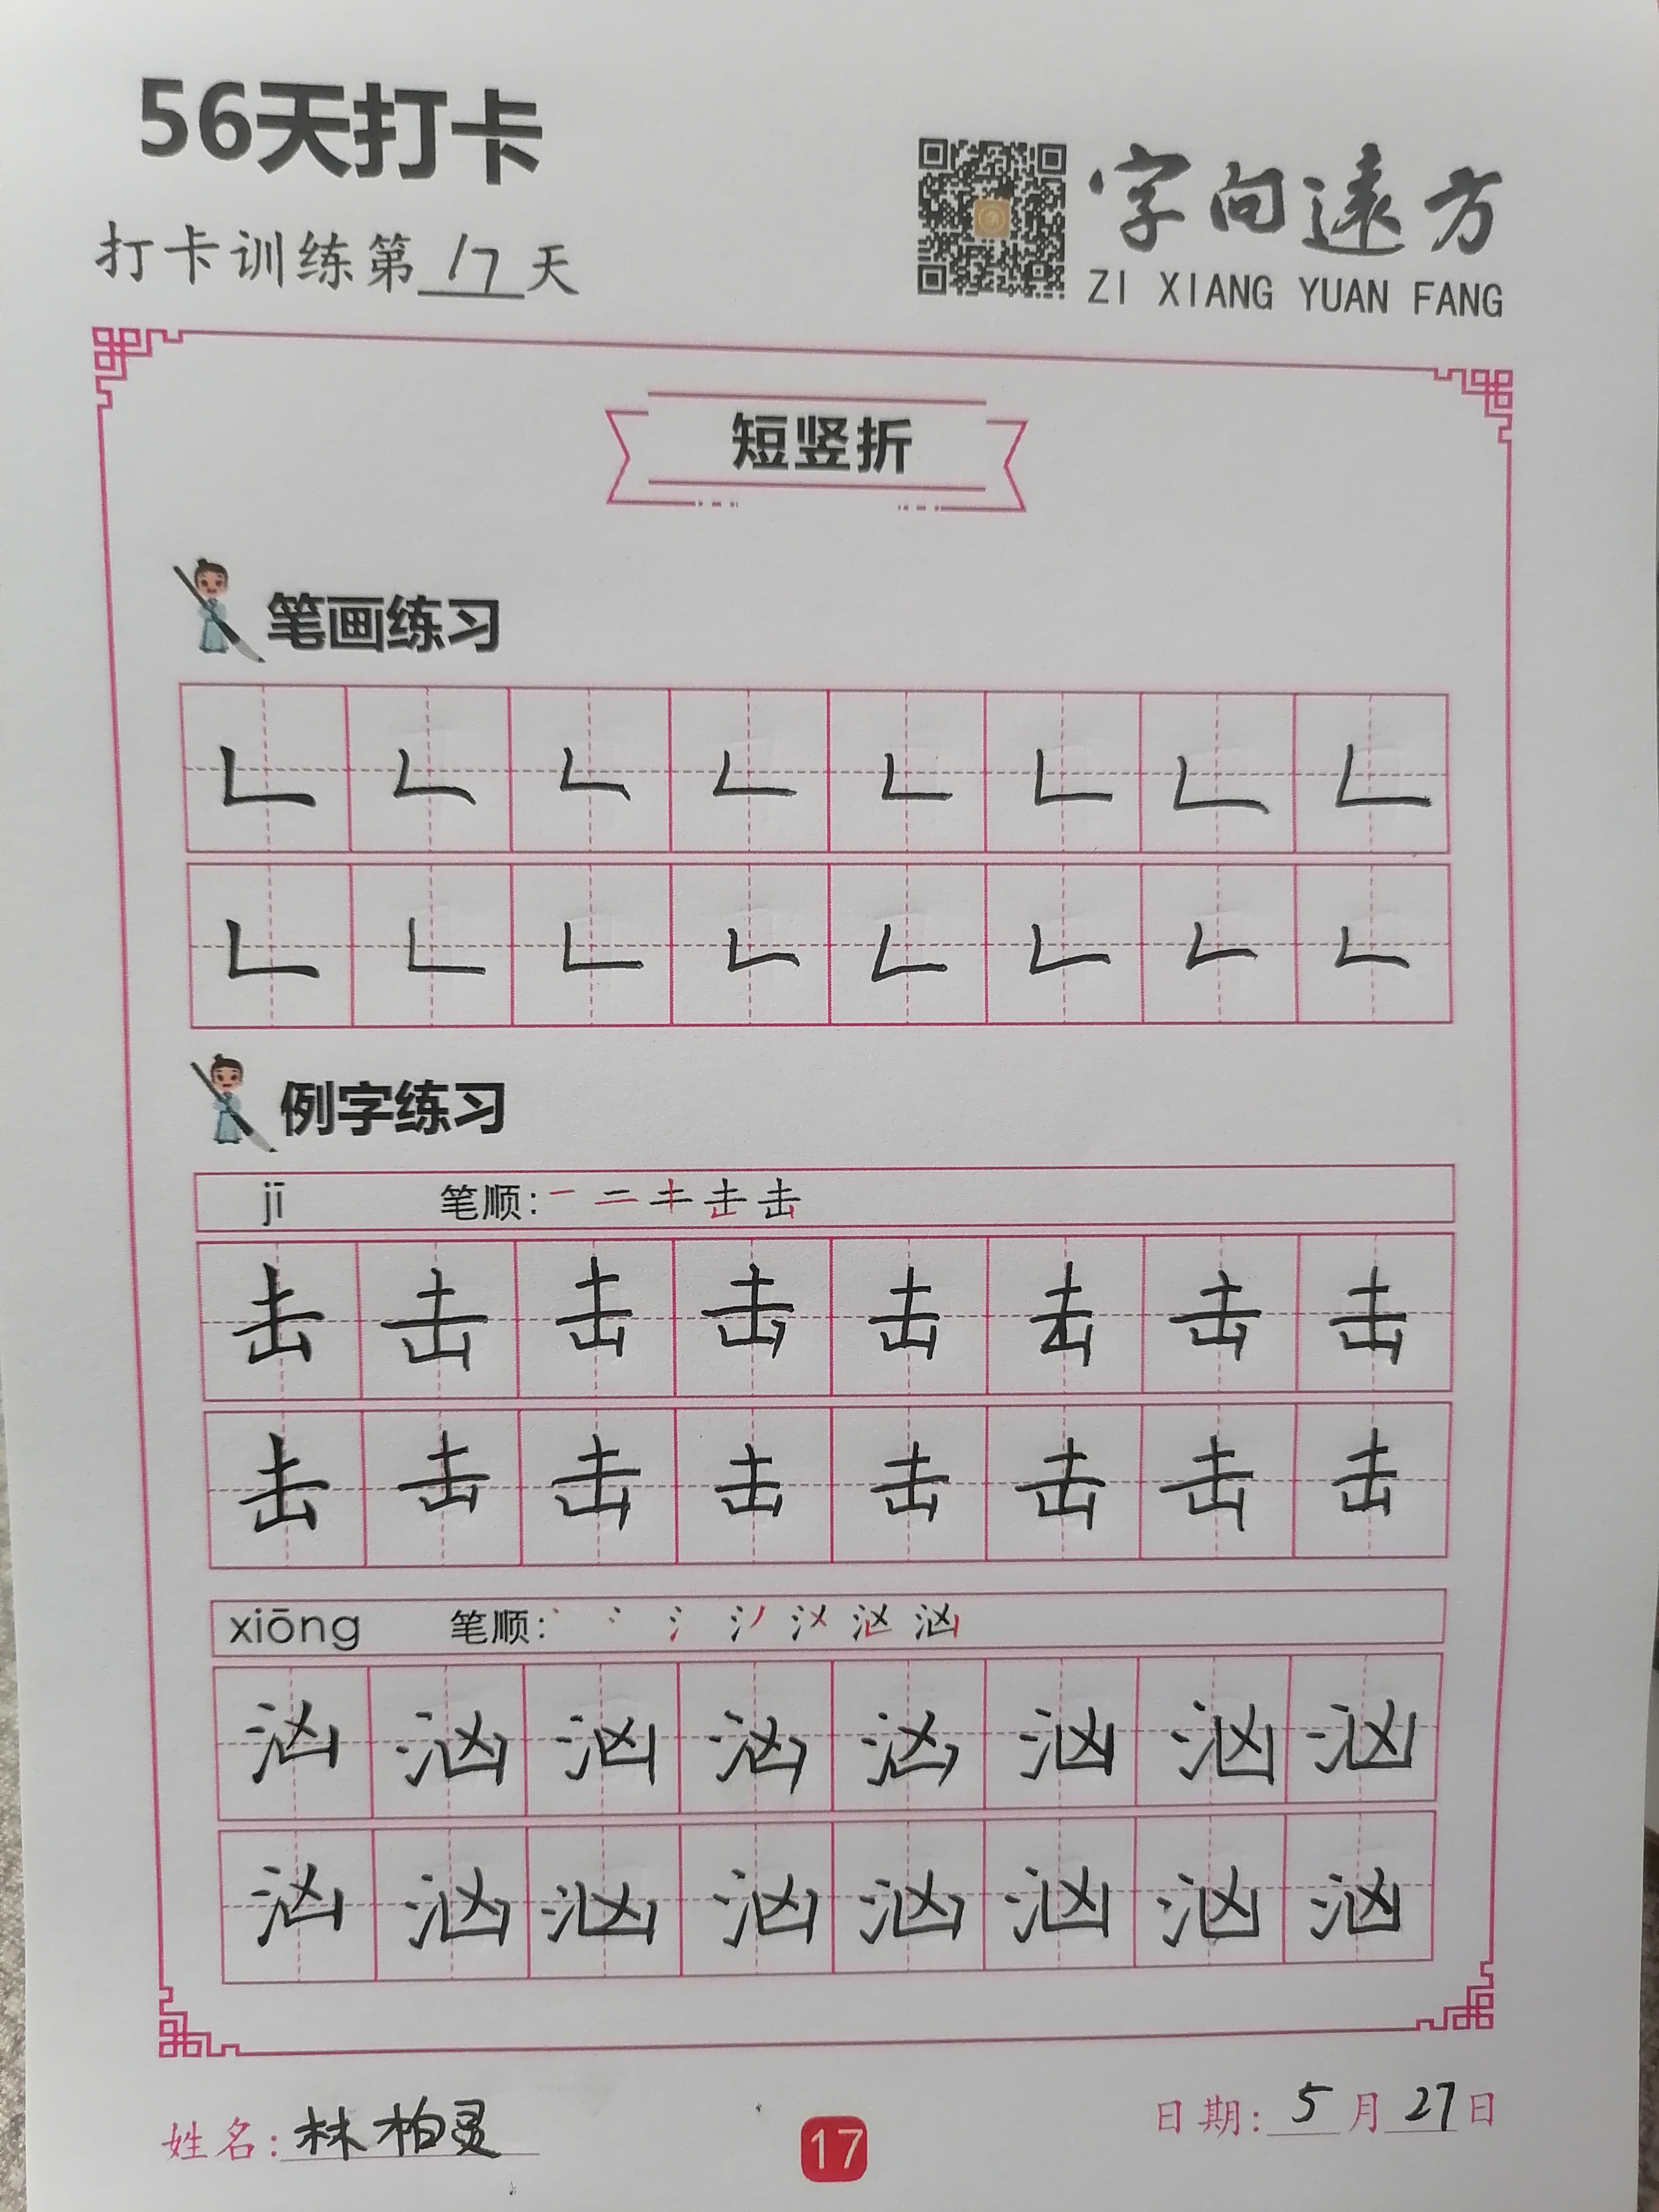 56天打卡
打卡训练第17天
字向遠方
ZI XIANG YUAN FANG
短竖折
笔画练习
𠃊 𠃊 𠃊 𠃊 𠃊 𠃊 𠃊 𠃊
𠃊 𠃊 𠃊 𠃊 𠃊 𠃊 𠃊 𠃊
例字练习
jī 笔顺: 击
击 击 击 击 击 击 击 击
击 击 击 击 击 击 击 击
xiōng 笔顺: 汹
汹 汹 汹 汹 汹 汹 汹 汹
汹 汹 汹 汹 汹 汹 汹 汹
姓名: 林柏灵
17
日期: 5月27日